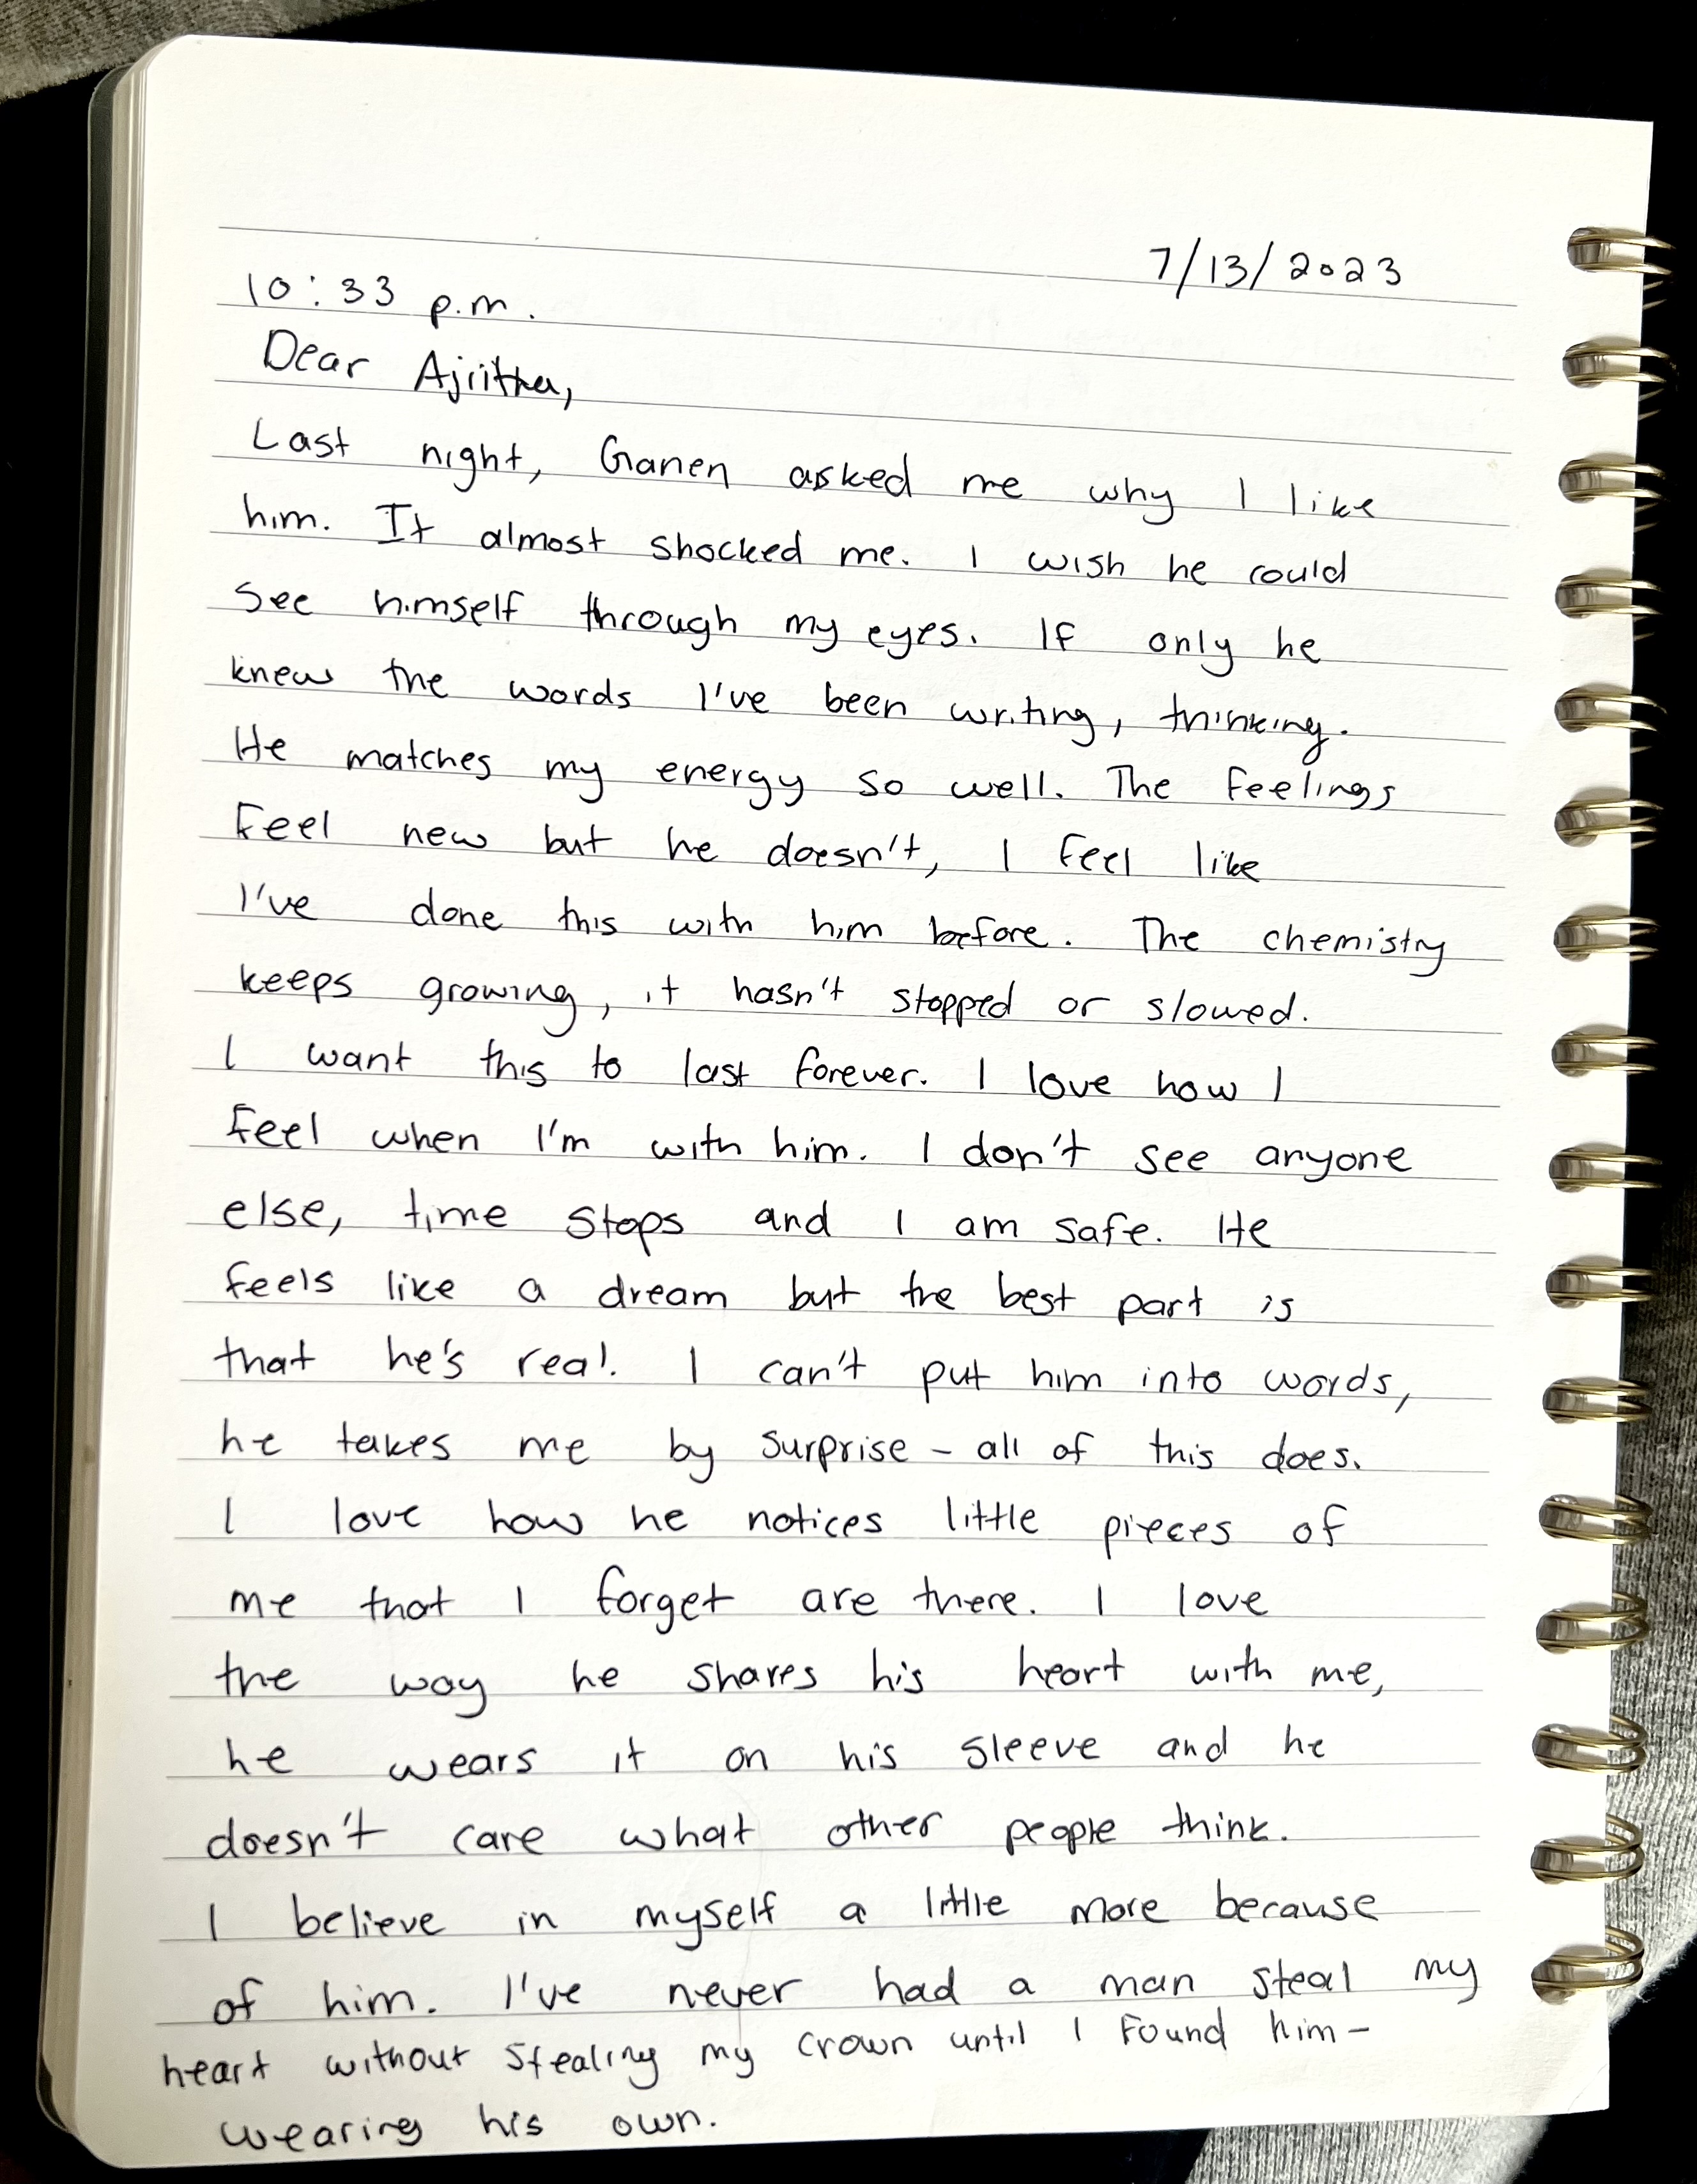 7/13/2023
10:33 p.m.
Dear Ajritha,
Last night, Ganen asked me why I like
him. It almost shocked me. I wish he could
see himself through my eyes. If only he
knew the words I've been writing, thinking.
He matches my energy so well. The feelings
feel new but he doesn't, I feel like
I've done this with him before. The chemistry
keeps growing, it hasn't stopped or slowed.
I want this to last forever. I love how I
feel when I'm with him. I don't see anyone
else, time stops and I am safe. He
feels like a dream but the best part is
that he's real. I can't put him into words,
he takes me by surprise - all of this does.
I love how he notices little pieces of
me that I forget are there. I love
the way he shares his heart with me,
he wears it on his sleeve and he
doesn't care what other people think.
I believe in myself a little more because
of him. I've never had a man steal my
heart without stealing my crown until I found him -
wearing his own.